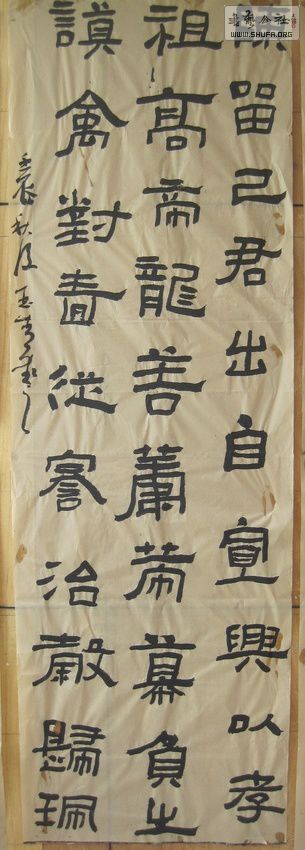 WWW.SHUFA.ORG
留己君出自宣興以孝
祖高帝龍善蕭芾慕負之
謨禽對書從窓治歸珮
壬辰秋月王